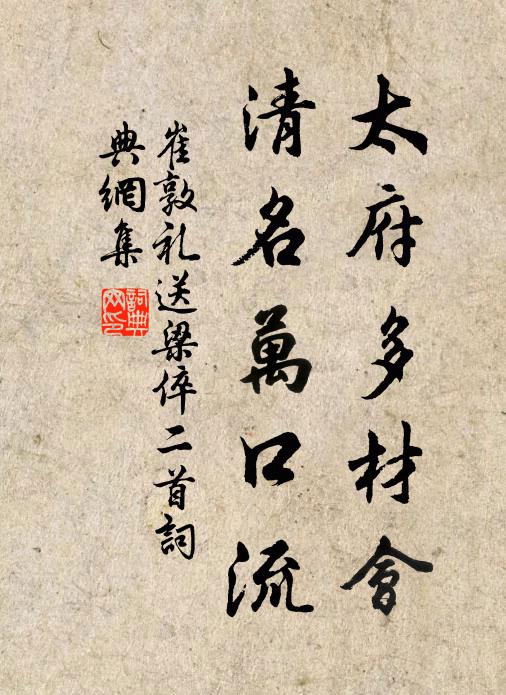 太府多材會
清名萬口流
崔敦礼送梁倅二首詞
典網集
詞典
网印